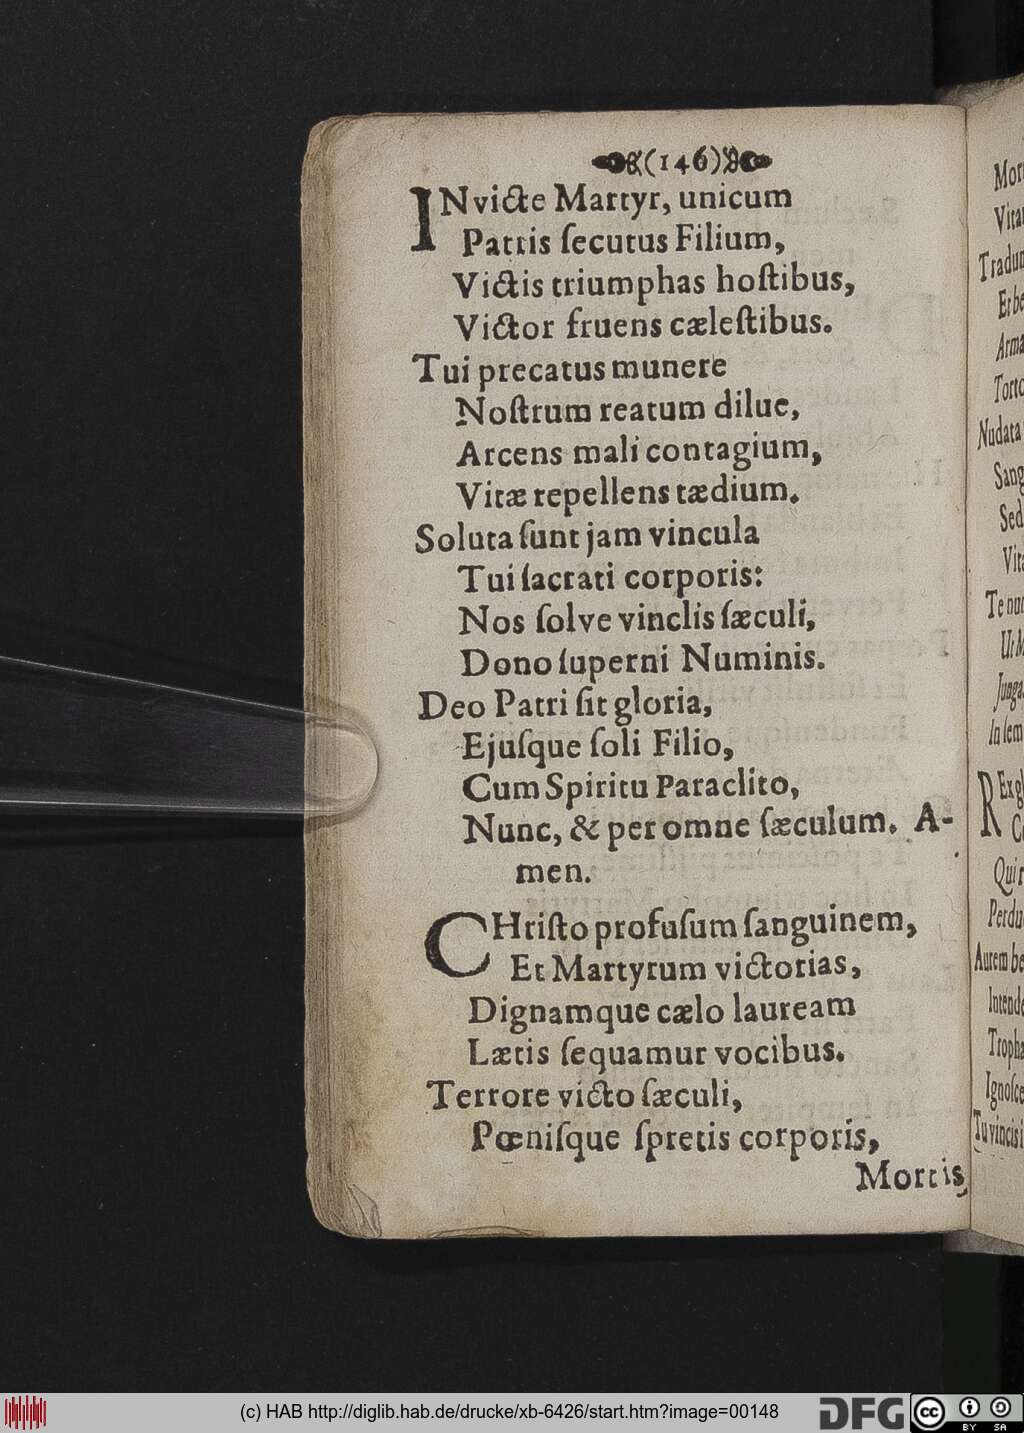 (146)
INvicte Martyr, unicum
Patris ſecutus Filium,
Victis triumphas hoſtibus,
Victor fruens cæleſtibus.
Tui precatus munere
Noſtrum reatum dilue,
Arcens mali contagium,
Vitæ repellens tædium.
Soluta ſunt jam vincula
Tui ſacrati corporis:
Nos ſolve vinclis ſæculi,
Dono ſuperni Numinis.
Deo Patri ſit gloria,
Ejuſque ſoli Filio,
Cum Spiritu Paraclito,
Nunc, & per omne ſæculum. A-
men.
CHriſto profuſum ſanguinem,
Et Martyrum victorias,
Dignamque cælo lauream
Lætis ſequamur vocibus.
Terrore victo ſæculi,
Pœniſque ſpretis corporis,
Mortis
(c) HAB http://diglib.hab.de/drucke/xb-6426/start.htm?image=00148
DFG
cc
BY SA